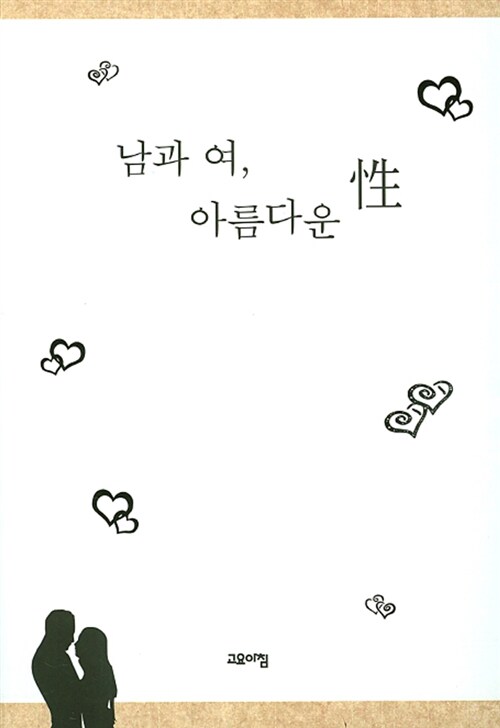 남과 여,
아름다운 性
고요아침